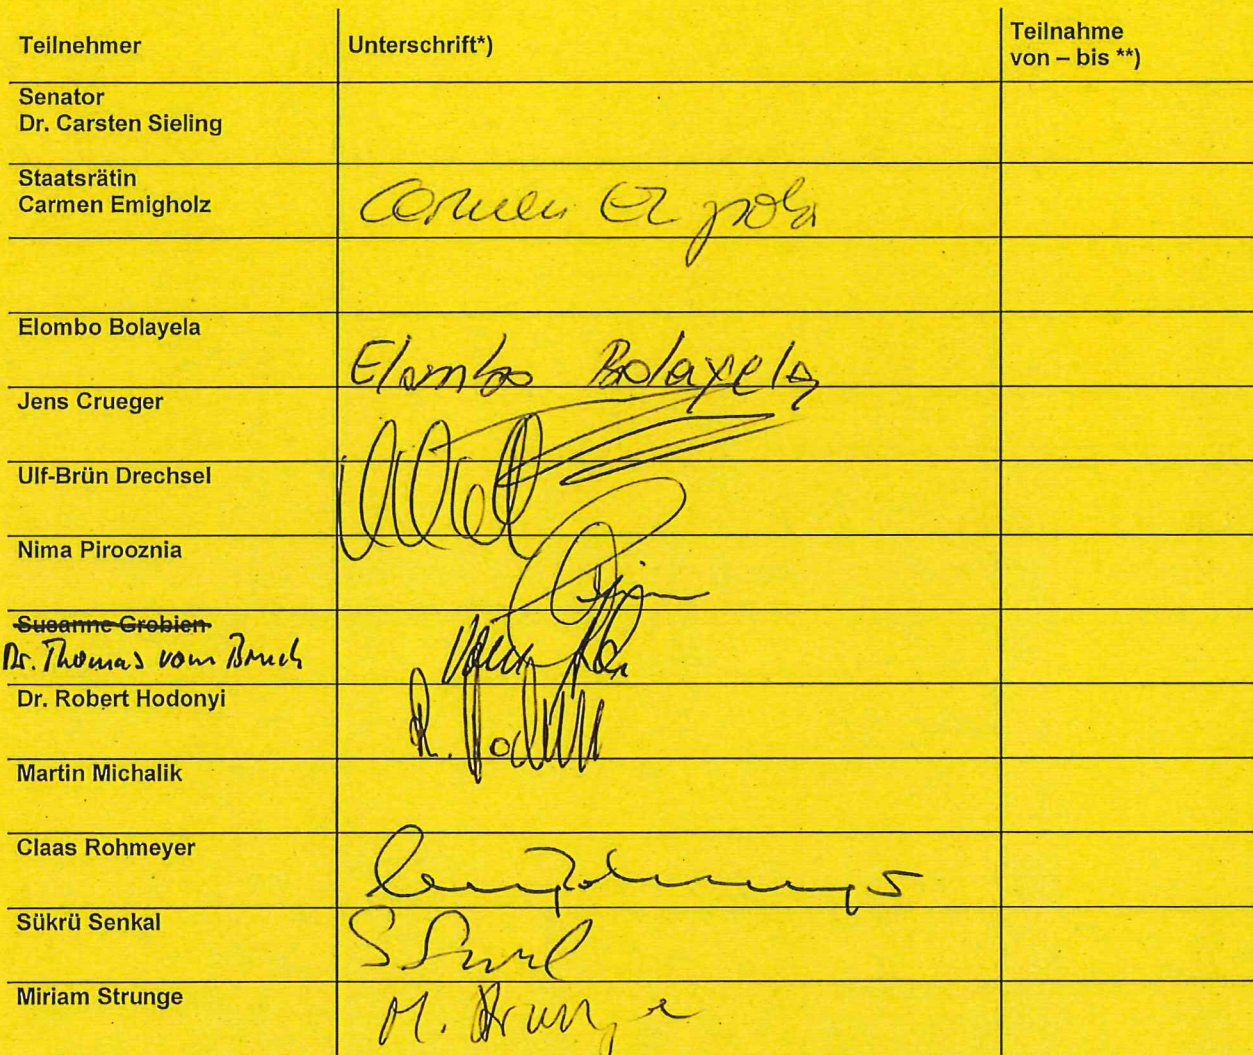 Teilnehmer Unterschrift*) Teilnahme
von – bis **)
Senator
Dr. Carsten Sieling
Staatsrätin
Carmen Emigholz
Carmen
Elombo Bolayela
Elombo Bolayela
Jens Crueger
Ulf-Brün Drechsel
Nima Pirooznia
Susanne Grobien
Dr. Thomas vom Bruch
Dr. Robert Hodonyi
R.
Martin Michalik
Claas Rohmeyer
Sükrü Senkal
S.
Miriam Strunge
M. Strunge